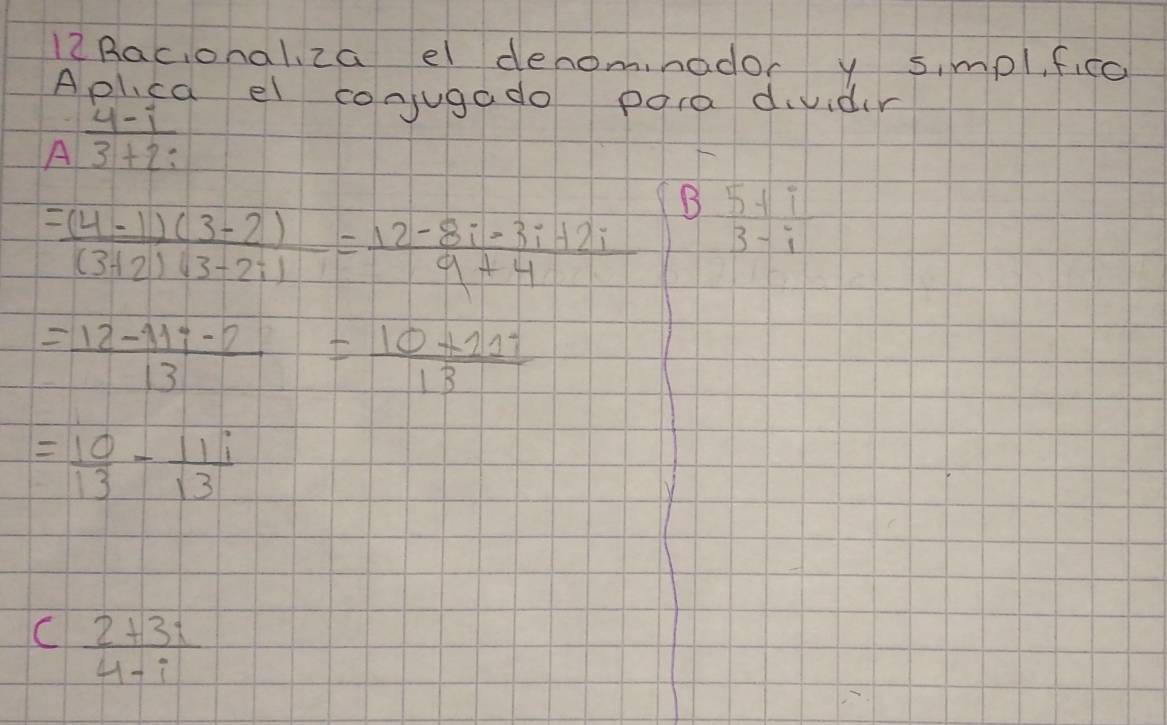 12 Racionaliza el denominador y simplifica
Aplica el conjugado para dividir
A 4-i / 3+2i
= (4-1)(3-2) / (3+2)(3-2i) = 12-8i-3i+2i / 9+4
= 12-11i-2 / 13 = 10+11i / 13
= 10/13 - 11i/13
B 5+i / 3-i
C 2+3i / 4-i